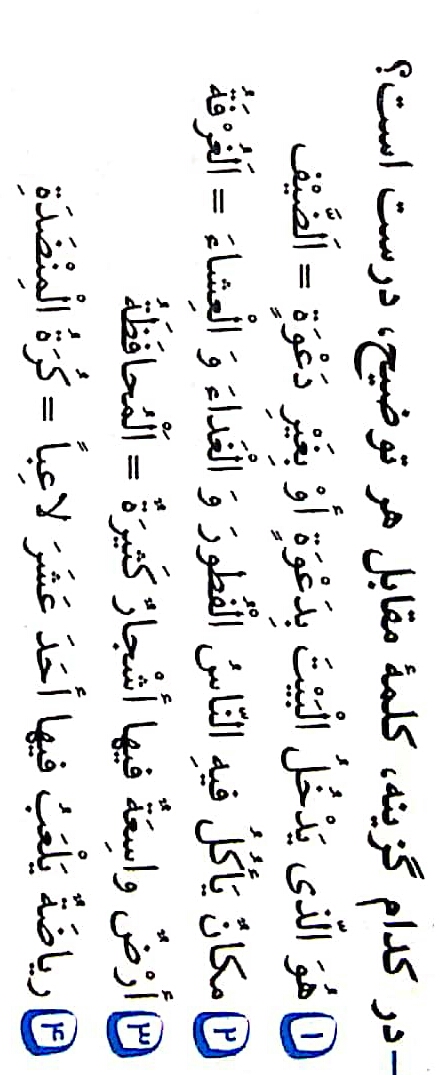 -در کدام گزینه، کلمهٔ مقابل هر توضیح، درست است؟
۱ هُوَ الّذی یَدْخُلُ الْبَیْتَ بِدَعْوَةٍ أوْ بِغَیْرِ دَعْوَةٍ = اَلضَّیْف
۲ مکانٌ یَأکُلُ فیهِ النّاسُ الْفُطورَ وَ الْغَداءَ وَ الْعِشاءَ = اَلغُرْفَةُ
۳ أرْضٌ واسِعَةٌ فیها أشْجارٌ کَثیرَةٌ = اَلْمُحافَظَةُ
۴ ریاضَةٌ یَلْعَبُ فیها أحَدَ عَشَرَ لاعِباً = کُرَةُ الْمِنْضَدَةِ